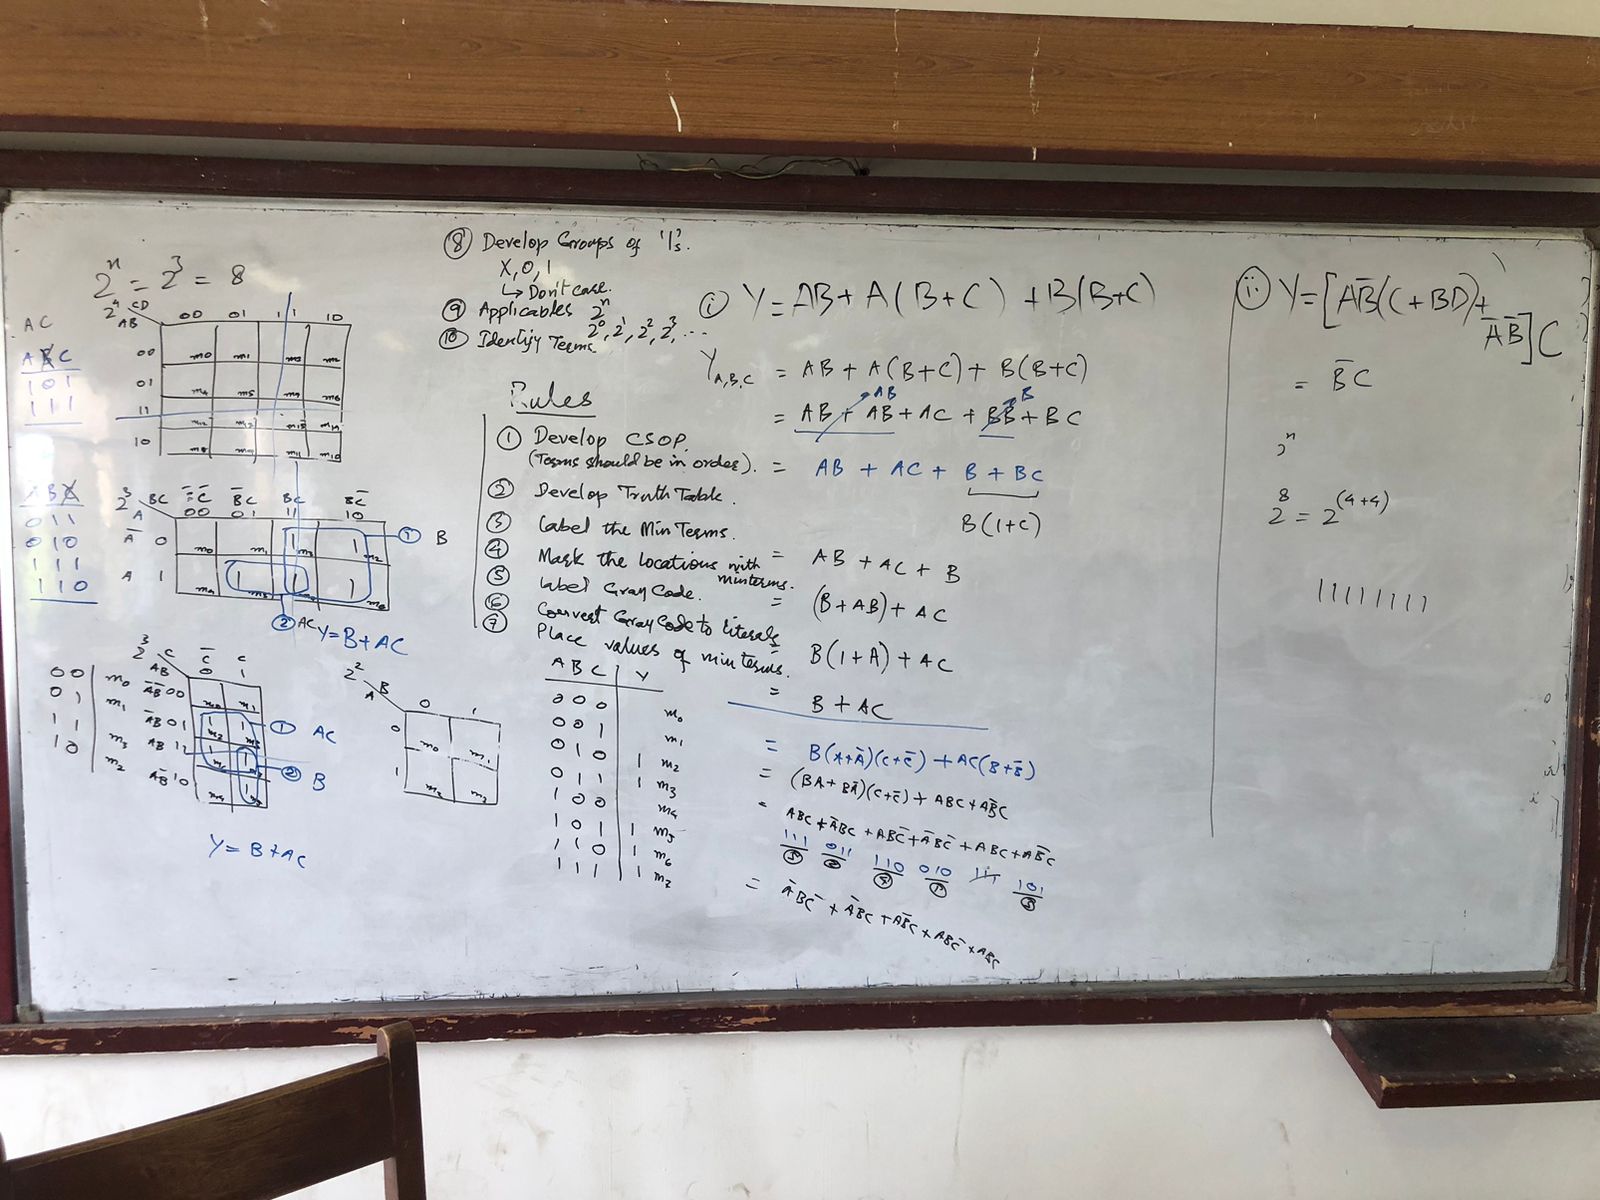 2ⁿ = 2³ = 8
2⁴ CD
AB
00 01 11 10
00 m₀ m₁ m₃ m₂
01 m₄ m₅ m₇ m₆
11 m₁₂ m₁₃ m₁₅ m₁₄
10 m₈ m₉ m₁₁ m₁₀
A C
A B C
1 0 1
1 1 1
A B C
0 1 1
0 1 0
1 1 1
1 1 0
2³ BC
A
B̅C BC BC̅
00 01 11 10
A̅ 0 m₀ m₁ 1 m₃ 1 m₂
A 1 m₄ 1 1 1
① B
② AC
Y = B + AC
2³ C
AB
C̅ C
0 1
A̅B̅ 00 m₀ m₁
A̅B 01 1 m₂ 1 m₃
AB 11 1 1
AB̅ 10 m₄ 1
① AC
② B
Y = B + AC
00 m₀
01 m₁
11 m₃
10 m₂
2² B
A
0 1
0 m₀ m₁
1 m₂ m₃
⑧ Develop Groups of '1's.
X, 0, 1
↳ Don't case.
⑨ Applicables 2ⁿ
2⁰, 2¹, 2², 2³, ...
⑩ Identify Terms
Rules
① Develop CSOP
(Terms should be in order).
② Develop Truth Table.
③ Label the Min Terms.
④ Mark the locations with minterms.
⑤ Label Gray Code.
⑥ Convert Gray Code to literals
⑦ Place values of min terms.
A B C Y
0 0 0 m₀
0 0 1 m₁
0 1 0 1 m₂
0 1 1 1 m₃
1 0 0 m₄
1 0 1 1 m₅
1 1 0 1 m₆
1 1 1 1 m₇
ⓘ Y = AB + A(B+C) + B(B+C)
Y A,B,C = AB + A(B+C) + B(B+C)
AB B
= AB + AB + AC + BB + BC
= AB + AC + B + BC
B(1+C)
= AB + AC + B
= (B + AB) + AC
= B(1+A) + AC
= B + AC
= B(A+A̅)(C+C̅) + AC(B+B̅)
= (BA + BA̅)(C+C̅) + ABC + AB̅C
= ABC + A̅BC + ABC̅ + A̅BC̅ + ABC + AB̅C
111 011 110 010 111 101
= A̅BC̅ + A̅BC + AB̅C + ABC̅ + ABC
ii Y = [AB̅(C + BD) + A̅B̅]C
= B̅C
2ⁿ
2⁸ = 2⁽⁴⁺⁴⁾
11111111